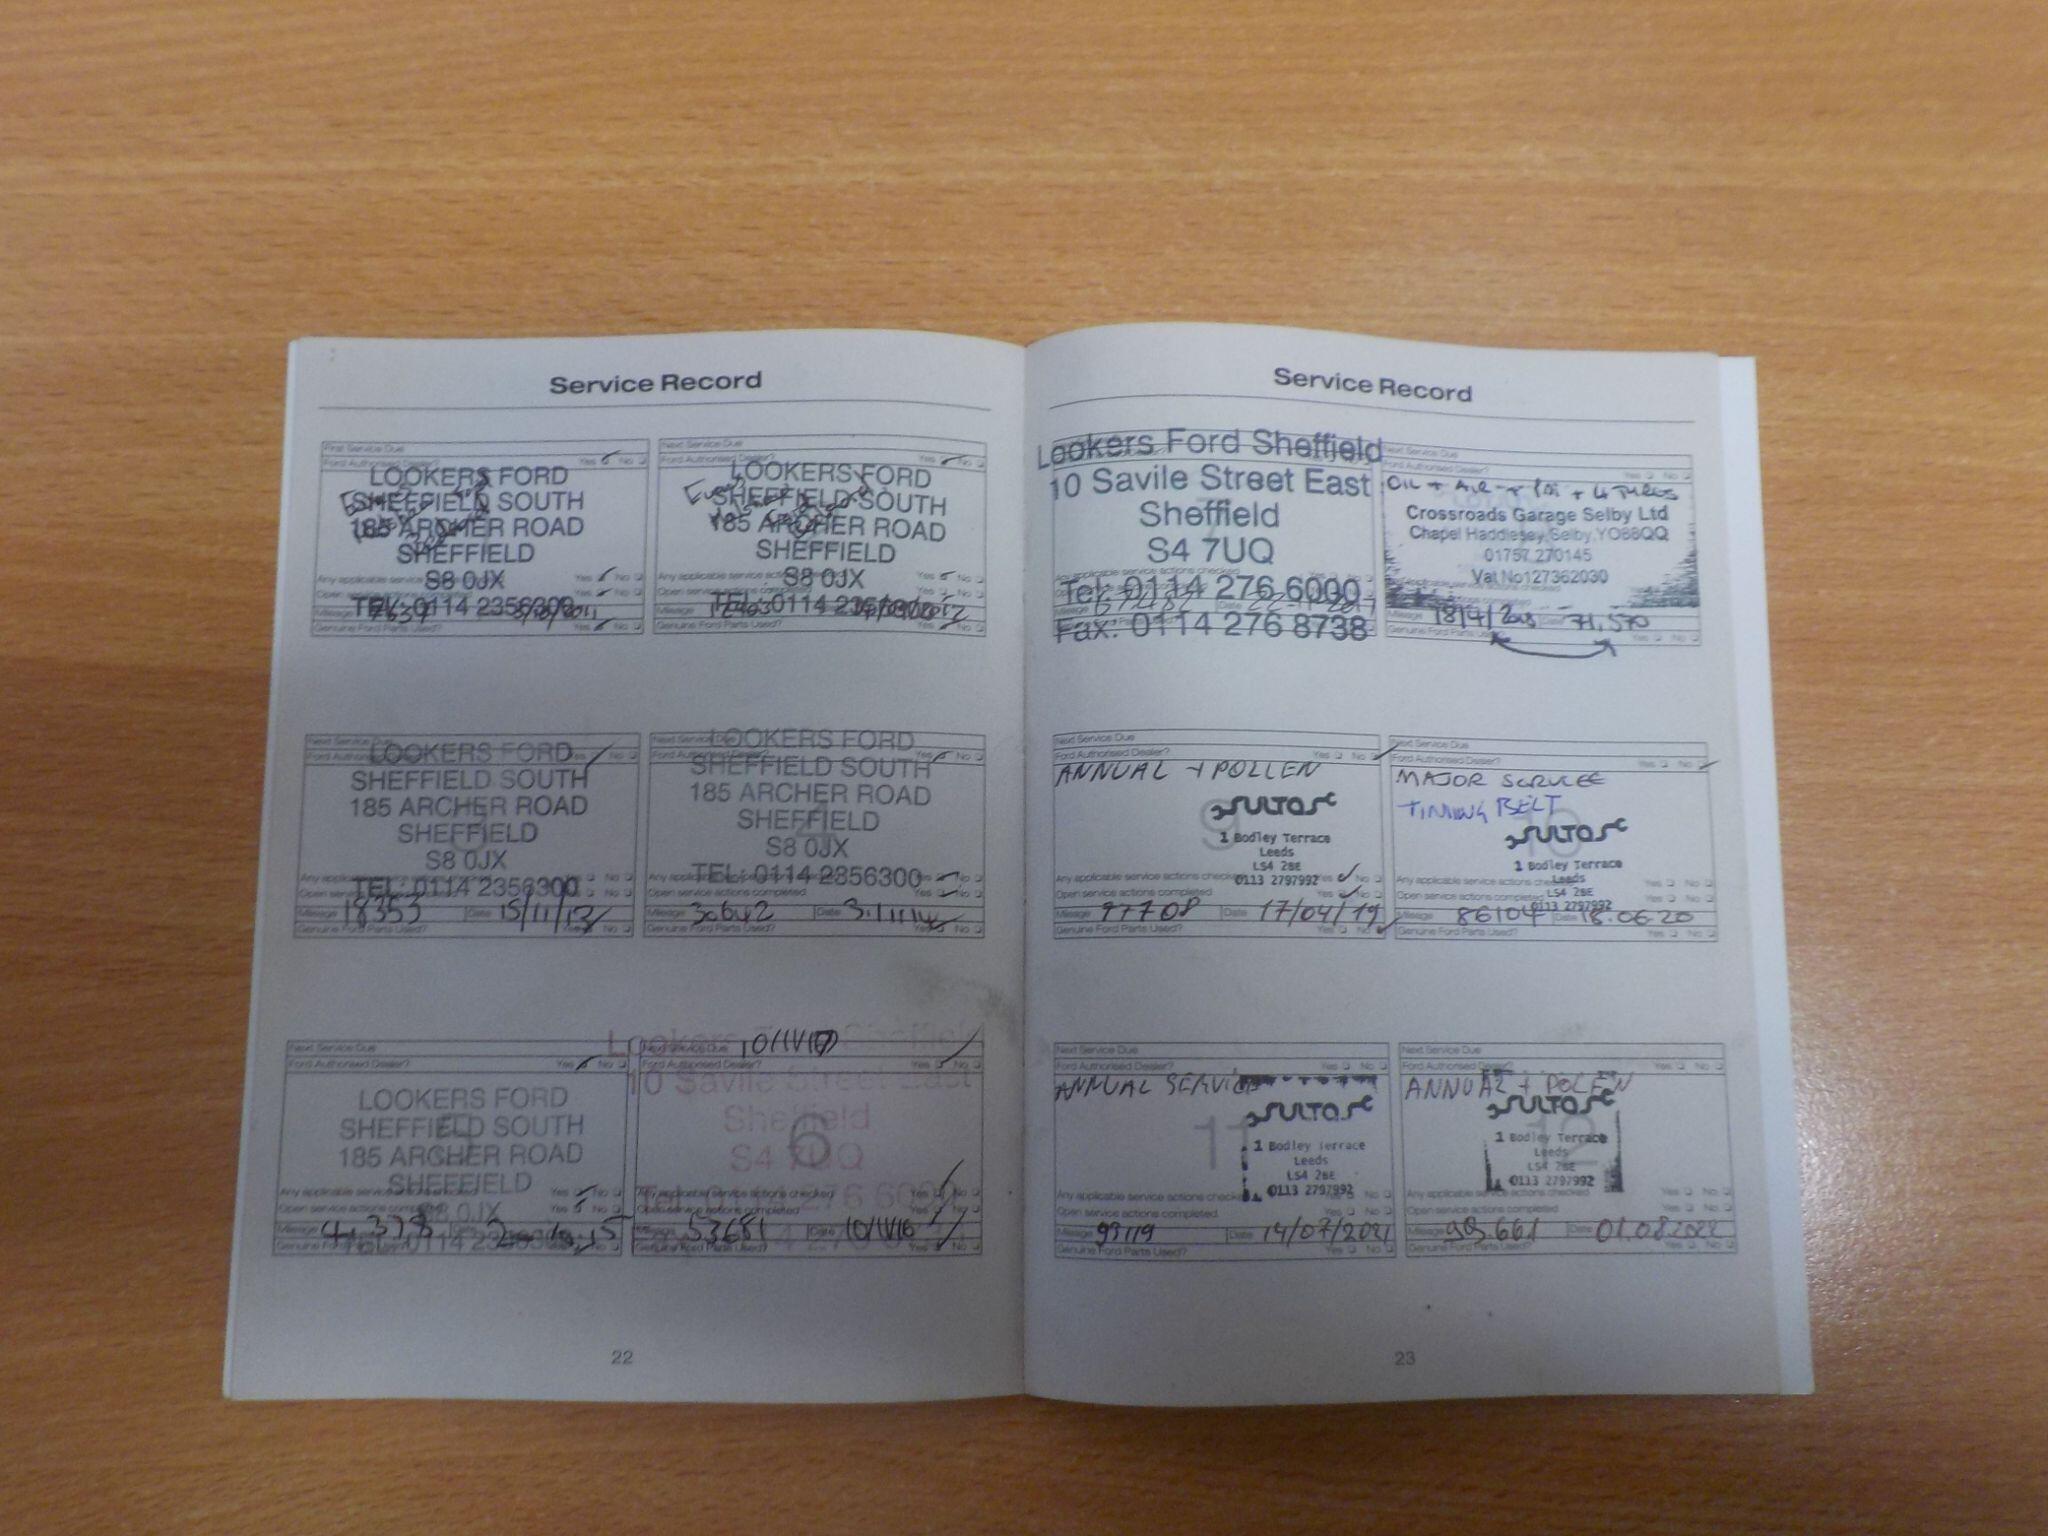 Service Record
First Service Due
Ford Authorised Dealer? Yes No
LOOKERS FORD
SHEFFIELD SOUTH
185 ARCHER ROAD
SHEFFIELD
S8 0JX
TEL: 0114 2356300
Any applicable service Yes No
Mileage 7637
Genuine Ford Parts Used? Yes No
Next Service Due
Ford Authorised Dealer? Yes No
LOOKERS FORD
SHEFFIELD SOUTH
185 ARCHER ROAD
SHEFFIELD
S8 0JX
TEL: 0114 2356300
Any applicable service actions checked Yes No
Mileage
Genuine Ford Parts Used? Yes No
Next Service Due
Ford Authorised Dealer?
LOOKERS FORD
SHEFFIELD SOUTH
185 ARCHER ROAD
SHEFFIELD
S8 0JX
TEL: 0114 2356300
Any applicable service
Open service actions completed
Mileage 18353 Date 15/11/13
Genuine Ford Parts Used? Yes No
Next Service Due
Ford Authorised Dealer? Yes No
LOOKERS FORD
SHEFFIELD SOUTH
185 ARCHER ROAD
4
SHEFFIELD
S8 0JX
TEL: 0114 2356300
Any applicable service actions
Open service actions completed Yes No
Mileage 30642 Date 3.11.14
Genuine Ford Parts Used? Yes No
Next Service Due
Ford Authorised Dealer? Yes No
LOOKERS FORD
SHEFFIELD SOUTH
185 ARCHER ROAD
5
SHEFFIELD
S8 0JX
TEL: 0114 2356300
Any applicable service actions checked Yes No
Open service actions completed Yes No
Mileage Date
Genuine Ford Parts Used?
Next Service Due 10/11/17
Ford Authorised Dealer?
Lookers Ford Sheffield
10 Savile Street East
Sheffield
6
S4 7UQ
Any applicable service actions checked Yes No
Tel: 0114 276 6000
Open service actions completed
Mileage 53681 Date 10/11/16
Genuine Ford Parts Used? Yes No
22
Service Record
Lookers Ford Sheffield
10 Savile Street East
Sheffield
S4 7UQ
Tel: 0114 276 6000
Mileage Date
Fax: 0114 276 8738
Next Service Due
Ford Authorised Dealer? Yes No
OIL + AIR + + 4 TYRES
Crossroads Garage Selby Ltd
Chapel Haddlesey,Selby,YO88QQ
01757 270145
Vat No127362030
Mileage 18/4/2018 Date 71,570
Genuine Ford Parts Used? Yes No
Next Service Due
Ford Authorised Dealer? Yes No
ANNUAL + POLLEN
9
SULTAS
1 Bodley Terrace
Leeds
LS4 2BE
0113 2797992
Any applicable service actions checked Yes No
Open service actions completed Yes No
Mileage 77708 Date 17/04/19
Genuine Ford Parts Used? Yes No
Next Service Due
Ford Authorised Dealer? Yes No
MAJOR SERVICE
TIMING BELT
10
SULTAS
1 Bodley Terrace
Leeds
LS4 2BE
0113 2797992
Any applicable service actions Yes No
Open service actions completed Yes No
Mileage 86104 Date 18.06.20
Genuine Ford Parts Used? Yes No
Next Service Due
Ford Authorised Dealer? Yes No
ANNUAL SERVICE
11
SULTAS
1 Bodley Terrace
Leeds
LS4 2BE
0113 2797992
Any applicable service actions checked Yes No
Open service actions completed
Mileage 93119 Date 14/07/2021
Genuine Ford Parts Used? Yes No
Next Service Due
Ford Authorised Dealer? Yes No
ANNUAL + POLEN
12
SULTAS
1 Bodley Terrace
Leeds
LS4 2BE
0113 2797992
Any applicable service actions checked Yes No
Open service actions completed
Mileage 99.661 Date 01.08.2022
Genuine Ford Parts Used? Yes No
23